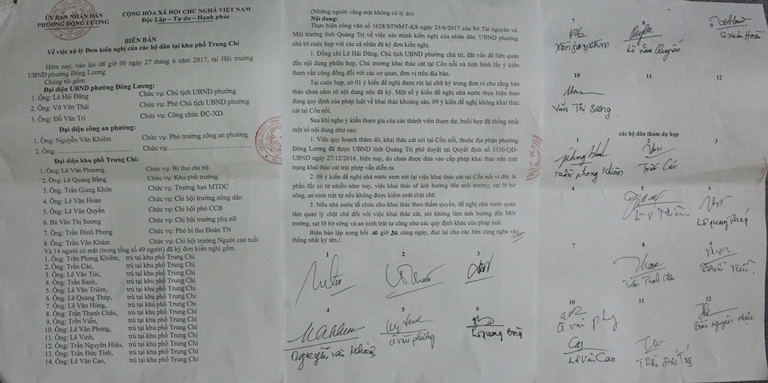 ỦY BAN NHÂN DÂN
PHƯỜNG ĐÔNG LƯƠNG
CỘNG HÒA XÃ HỘI CHỦ NGHĨA VIỆT NAM
Độc Lập - Tự do - Hạnh phúc
BIÊN BẢN
Về việc xử lý Đơn kiến nghị của các hộ dân tại khu phố Trung Chỉ
Hôm nay, vào lúc 08 giờ 00 ngày 27 tháng 6 năm 2017, tại Hội trường
UBND phường Đông Lương
Chúng tôi gồm:
Đại diện UBND phường Đông Lương:
1. Ông: Lê Hải Đăng Chức vụ: Chủ tịch UBND phường
2. Ông: Võ Văn Thái Chức vụ: Phó Chủ tịch UBND phường
3. Ông: Đỗ Văn Trí Chức vụ: Công chức ĐC-XD
Đại diện công an phường:
1. Ông: Nguyễn Văn Khiêm Chức vụ: Phó trưởng công an phường
2. Ông: Chức vụ:
Đại diện khu phố Trung Chỉ:
1. Ông: Lê Văn Phương Chức vụ: Bí thư chi bộ
2. Ông: Lê Quang Bằng Chức vụ: Khu phố trưởng
3. Ông: Trần Giang Khôn Chức vụ: Trưởng ban MTDC
4. Ông: Lê Văn Hoàn Chức vụ: Chi hội trưởng nông dân
5. Ông: Lê Văn Quyến Chức vụ: Chi hội phó CCB
6. Bà Văn Thị Sương Chức vụ: Chi hội trưởng phụ nữ
7. Ông: Trần Đình Phong Chức vụ: Phó bí thư Đoàn TN
8. Ông: Trần Văn Khâm Chức vụ: Chi hội trưởng Người cao tuổi
Và 14 người có mặt (trong tổng số 49 người) đã ký đơn kiến nghị gồm:
1. Ông: Trần Phong Khiêm, trú tại khu phố Trung Chỉ
2. Ông: Trần Các, trú tại khu phố Trung Chỉ
3. Ông: Lê Văn Túc, trú tại khu phố Trung Chỉ
4. Ông: Trần Sanh, trú tại khu phố Trung Chỉ
5. Ông: Lê Văn Triêm, trú tại khu phố Trung Chỉ
6. Ông: Lê Quang Thép, trú tại khu phố Trung Chỉ
7. Ông: Lê Văn Hùng, trú tại khu phố Trung Chỉ
8. Ông: Trần Thanh Châu, trú tại khu phố Trung Chỉ
9. Ông: Trần Viễn, trú tại khu phố Trung Chỉ
10. Ông: Lê Văn Phong, trú tại khu phố Trung Chỉ
11. Ông: Lê Vinh, trú tại khu phố Trung Chỉ
12. Ông: Trần Nguyên Hiệu, trú tại khu phố Trung Chỉ
13. Ông: Trần Đức Tính, trú tại khu phố Trung Chỉ
14. Ông: Lê Văn Cao, trú tại khu phố Trung Chỉ
(Những người vắng mặt không có lý do)
Nội dung:
Thực hiện công văn số 1628/STNMT-KS ngày 23/6/2017 của Sở Tài nguyên và
Môi trường tỉnh Quảng Trị về việc xác minh kiến nghị của nhân dân. UBND phường
chủ trì cuộc họp với các cá nhân đã ký đơn kiến nghị.
1. Đồng chí Lê Hải Đăng, Chủ tịch UBND phường chủ trì, đặt vấn đề liên quan
đến nội dung phiên họp, Chủ trương khai thác cát tại Cồn nổi và tình hình lấy ý kiến
tham vấn cộng đồng đối với các cơ quan, đơn vị trên địa bàn.
Tại cuộc họp, có 01 ý kiến đề nghị được rút lại chữ ký trong đơn vì cho rằng bản
thân chưa nắm rõ nội dung nên đã ký. Một số ý kiến đề nghị nhà nước thực hiện theo
đúng quy định của pháp luật về khai thác khoáng sản, 09 ý kiến đề nghị không khai thác
cát tại Cồn nổi.
Sau khi nghe ý kiến tham gia của các thành viên tham dự, buổi họp đã thống nhất
một số nội dung như sau:
1. Việc quy hoạch thăm dò, khai thác cát sỏi tại Cồn nổi, thuộc địa phận phường
Đông Lương đã được UBND tỉnh Quảng Trị phê duyệt tại Quyết định số 3330/QĐ-
UBND ngày 27/12/2016. hiện nay, do chưa được đưa vào cấp phép khai thác nên tình
trạng khai thác cát trái phép vẫn diễn ra.
2. 09 ý kiến đề nghị nhà nước xem xét lại việc khai thác cát tại Cồn nổi vì đây là
phần đất có từ nhiều năm nay, việc khai thác sẽ ảnh hưởng đến môi trường, sạt lở bờ
sông, an ninh trật tự nếu không được kiểm soát chặt chẽ.
3. Nếu nhà nước tổ chức cho khai thác theo thẩm quyền, đề nghị nhà nước quan
tâm quản lý chặt chẽ đối với việc khai thác cát, sỏi không làm ảnh hưởng đến Môi
trường, sạt lở bờ sông và an ninh trật tự cũng như các quy định khác của pháp luật.
Biên bản lập xong hồi giờ 30 cùng ngày, đọc lại cho các bên cùng nghe và
thống nhất ký tên./.
1 2 3
4 5 6
Nguyễn Văn Khiêm
Lê Quang Bằng
7
Lê Văn Quyến
Lê Văn Hoàn
10 11 12
Văn Thị Sương
các hộ dân tham dự họp
1 2 3
Trần Phong Khiêm Trần Các
6
Lê Quang Thép
7 8 9
Trần Thanh Châu
10 11 12
Trần Nguyên Hiệu
Lê Văn Cao